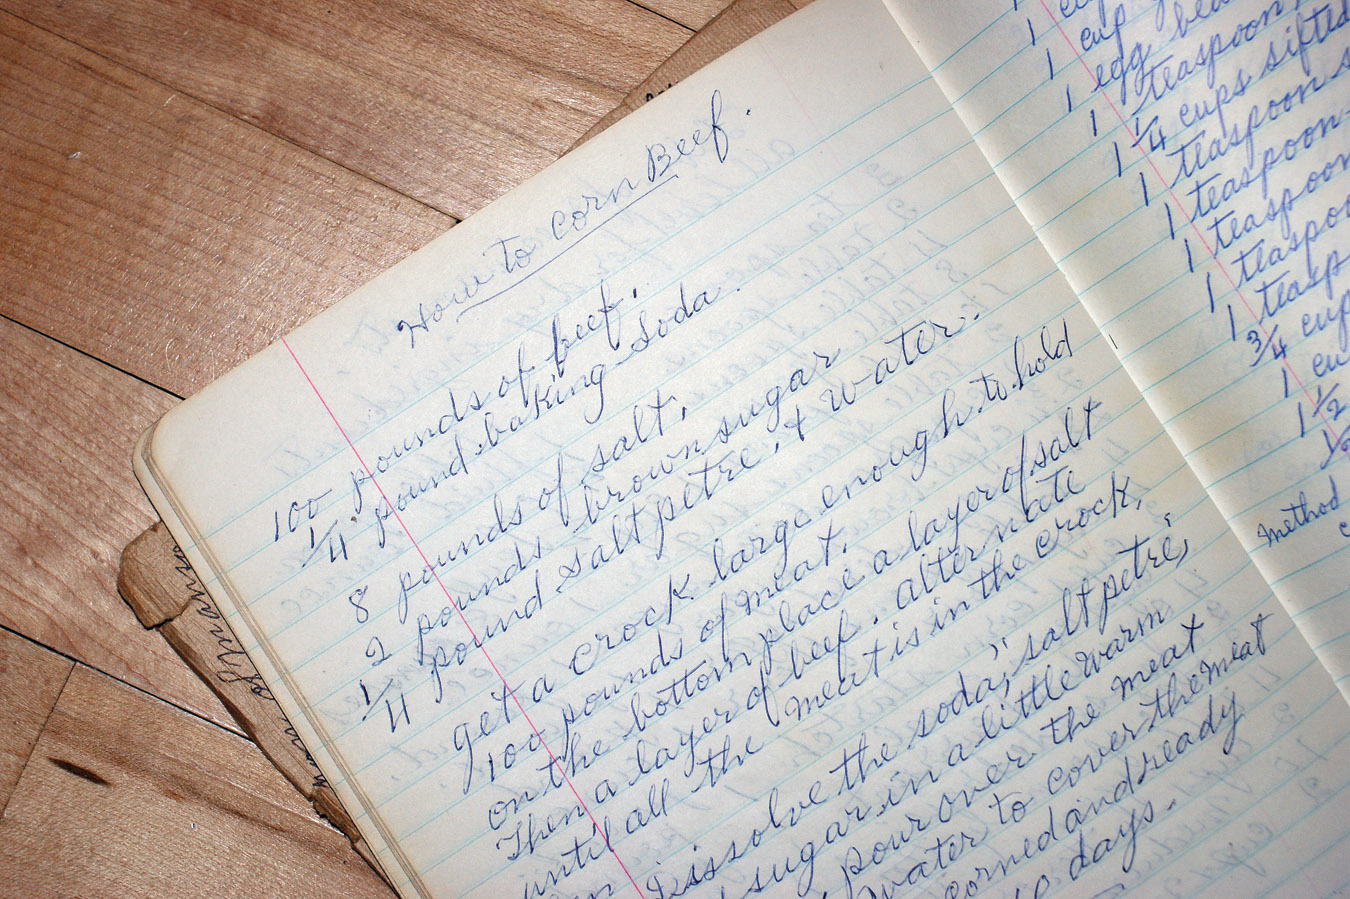 How to corn Beef.
100 pounds of beef.
1/4 pound baking soda.
8 pounds of salt,
2 pounds brown sugar
1/4 pound saltpetre, + water.
get a crock large enough to hold
100 pounds of meat.
on the bottom place a layer of salt
Then a layer of beef. alternate
until all the meat is in the crock,
Dissolve the soda, saltpetre,
sugar in a little warm
pour over the meat
water to cover the meat
corned and ready
days.
1 cup
1 egg
1 teaspoon
1 1/4 cups sifted
1 teaspoon
1 teaspoon
1 teaspoon
1 teaspoon
1 teasp
3/4 cup
1 cu
1 1/2
Method